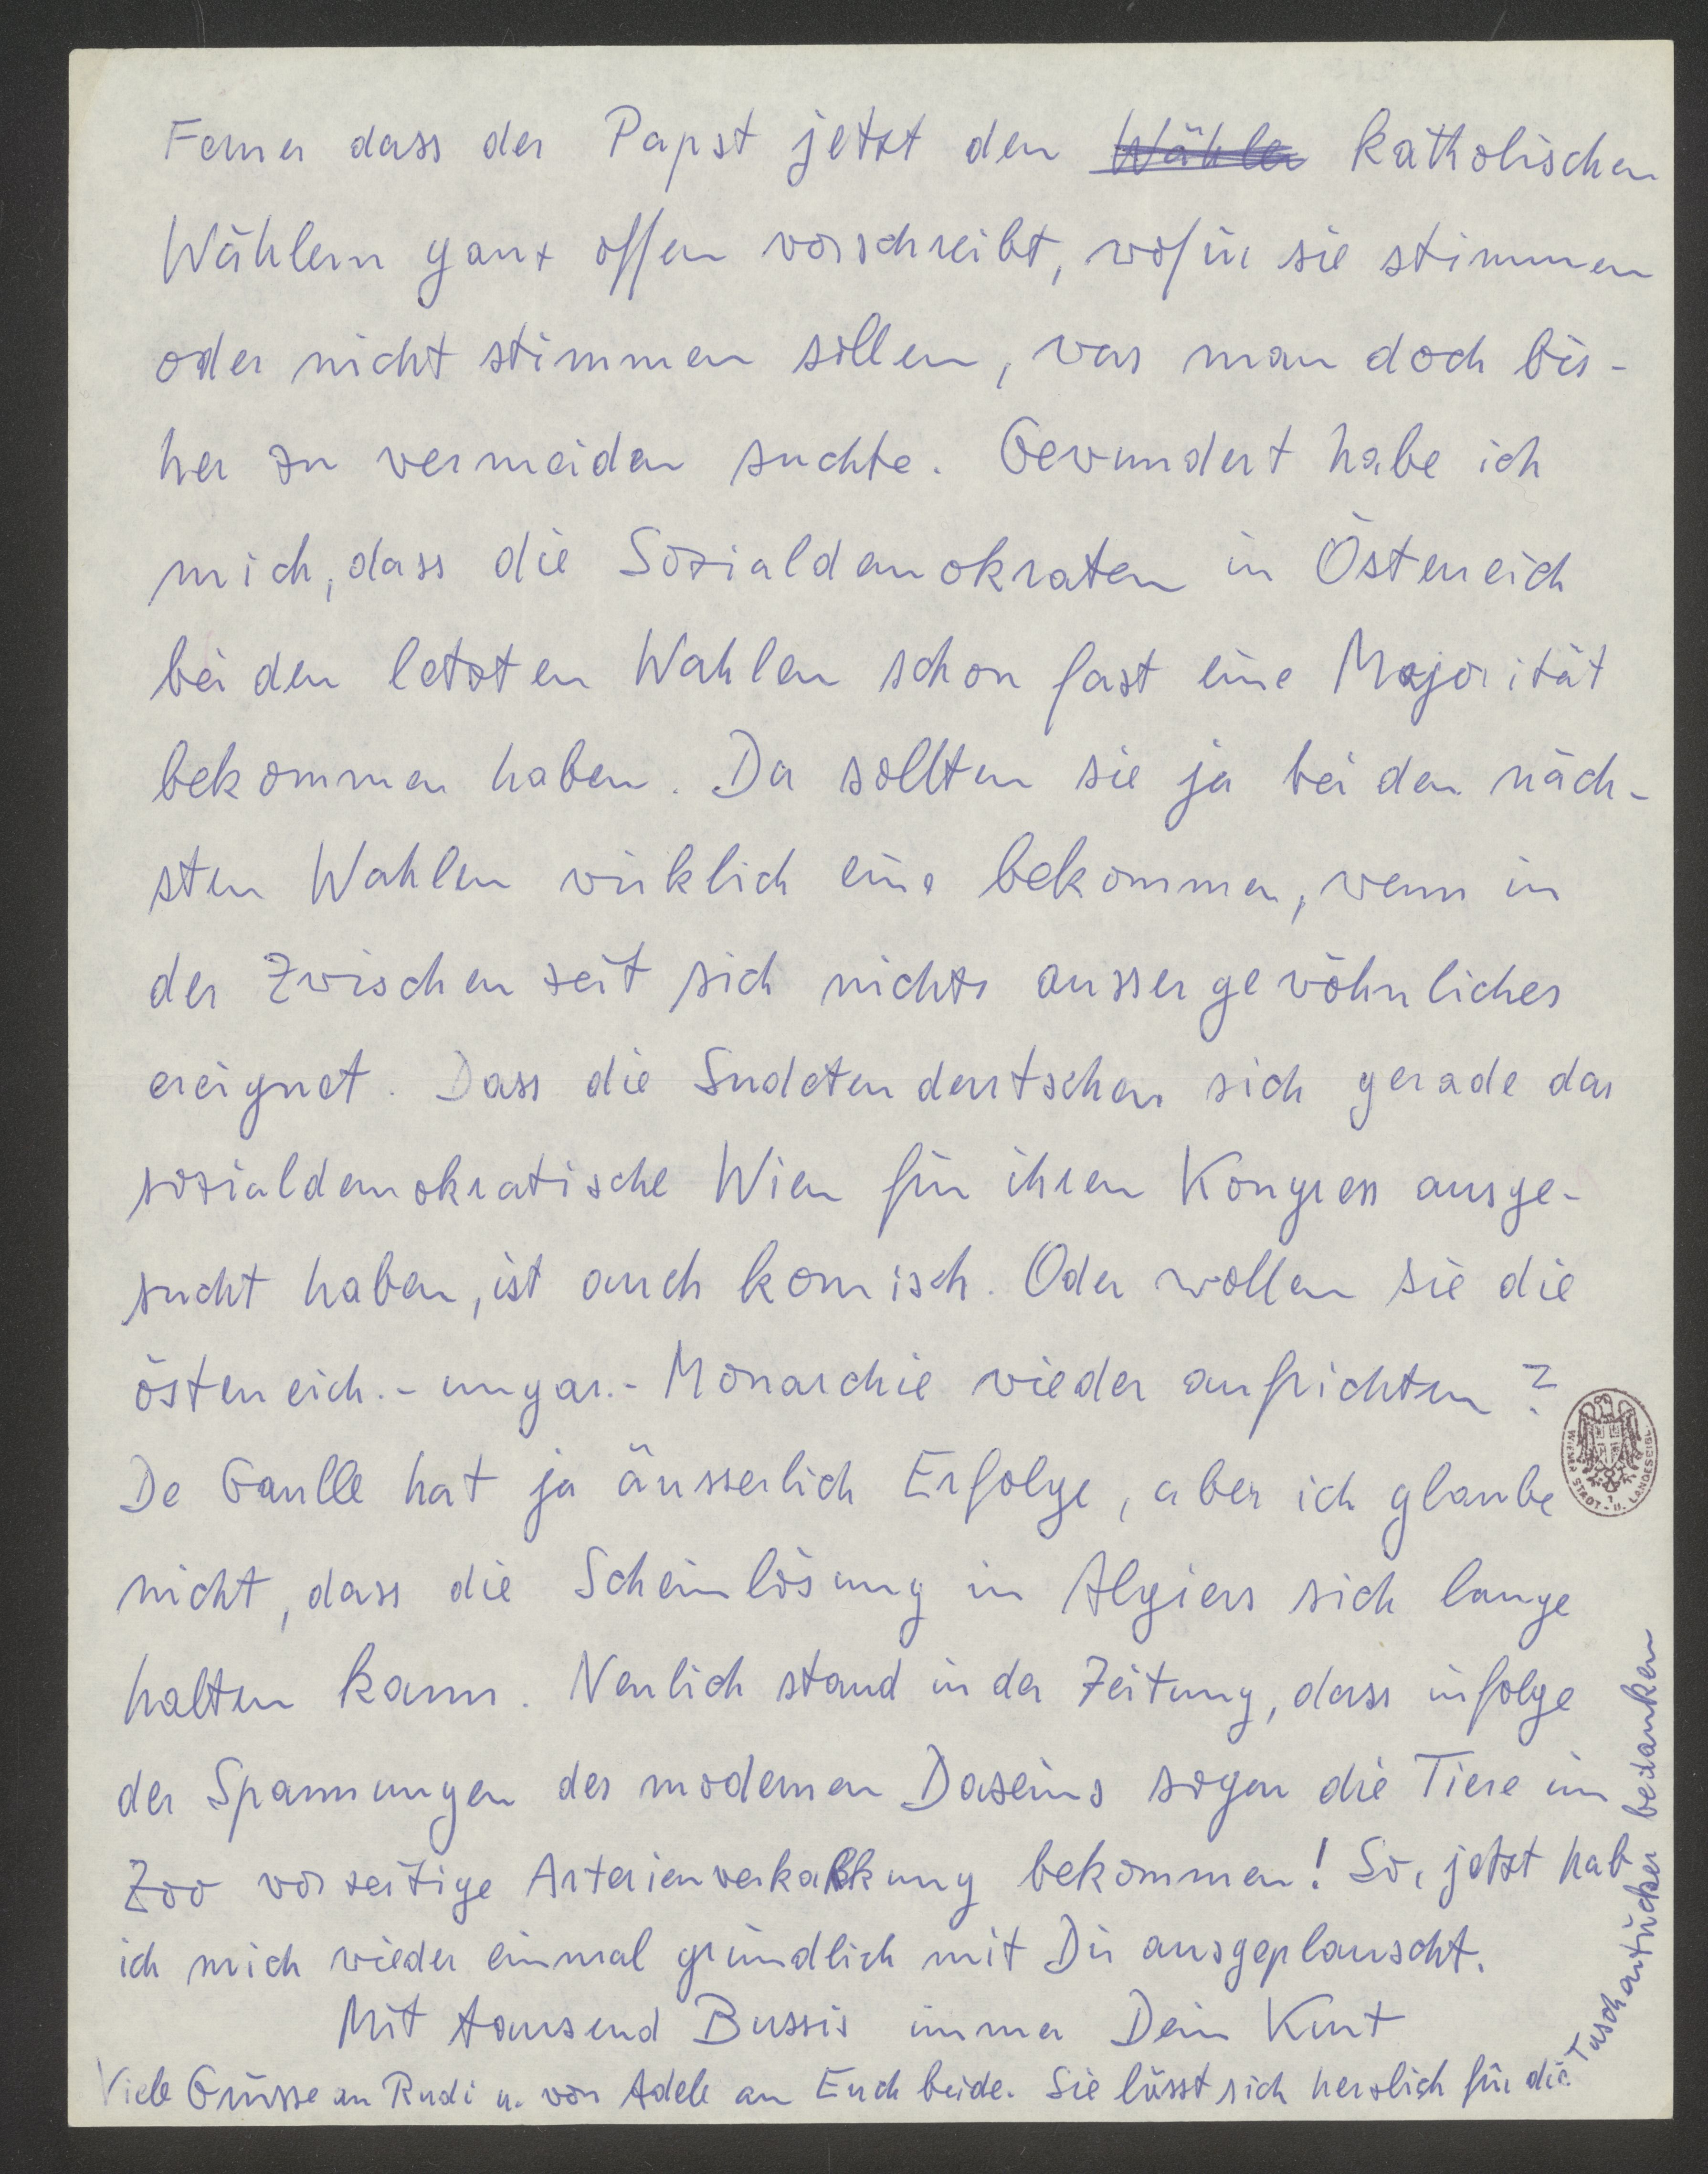 Ferner dass der Papst jetzt den Wähler katholischen
Wählern ganz offen vorschreibt, wofür sie stimmen
oder nicht stimmen sollen, was man doch bis-
her zu vermeiden suchte. Gewundert habe ich
mich, dass die Sozialdemokraten in Österreich
bei den letzten Wahlen schon fast eine Majorität
bekommen haben. Da sollten sie ja bei den näch-
sten Wahlen wirklich eine bekommen, wenn in
der Zwischenzeit sich nichts aussergewöhnliches
ereignet. Dass die Sudetendeutschen sich gerade das
sozialdemokratische Wien für ihren Kongress ausge-
sucht haben, ist auch komisch. Oder wollen sie die
österreich.-ungar.-Monarchie wieder aufrichten?
De Gaulle hat ja äusserlich Erfolge, aber ich glaube
nicht, dass die Scheinlösung in Algiers sich lange
halten kann. Neulich stand in der Zeitung, dass infolge
der Spannungen des modernen Daseins sogar die Tiere im
Zoo vorzeitige Arterienverkalkung bekommen! So, jetzt hab
ich mich wieder einmal gründlich mit Dir ausgeplauscht.
Mit tausend Bussis immer Dein Kurt
Viele Grüsse an Rudi u. von Adele an Euch beide. Sie lässt sich herzlich für die
Taschentücher bedanken
WIENER STADT- U. LANDESBIBL.